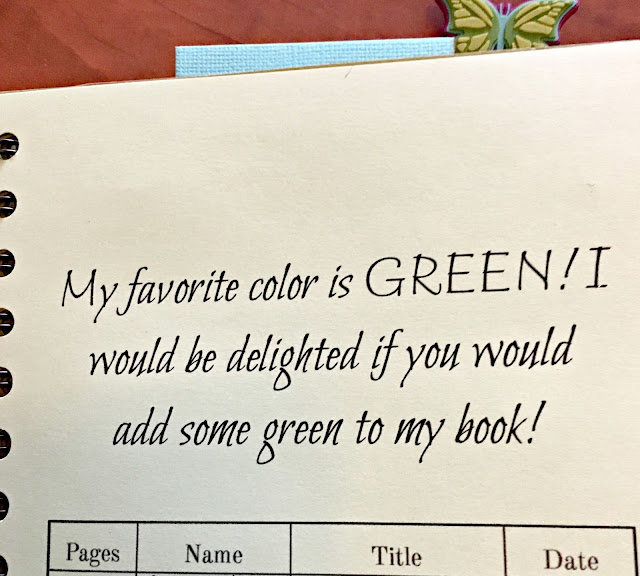 My favorite color is GREEN! I
would be delighted if you would
add some green to my book!
Pages Name Title Date